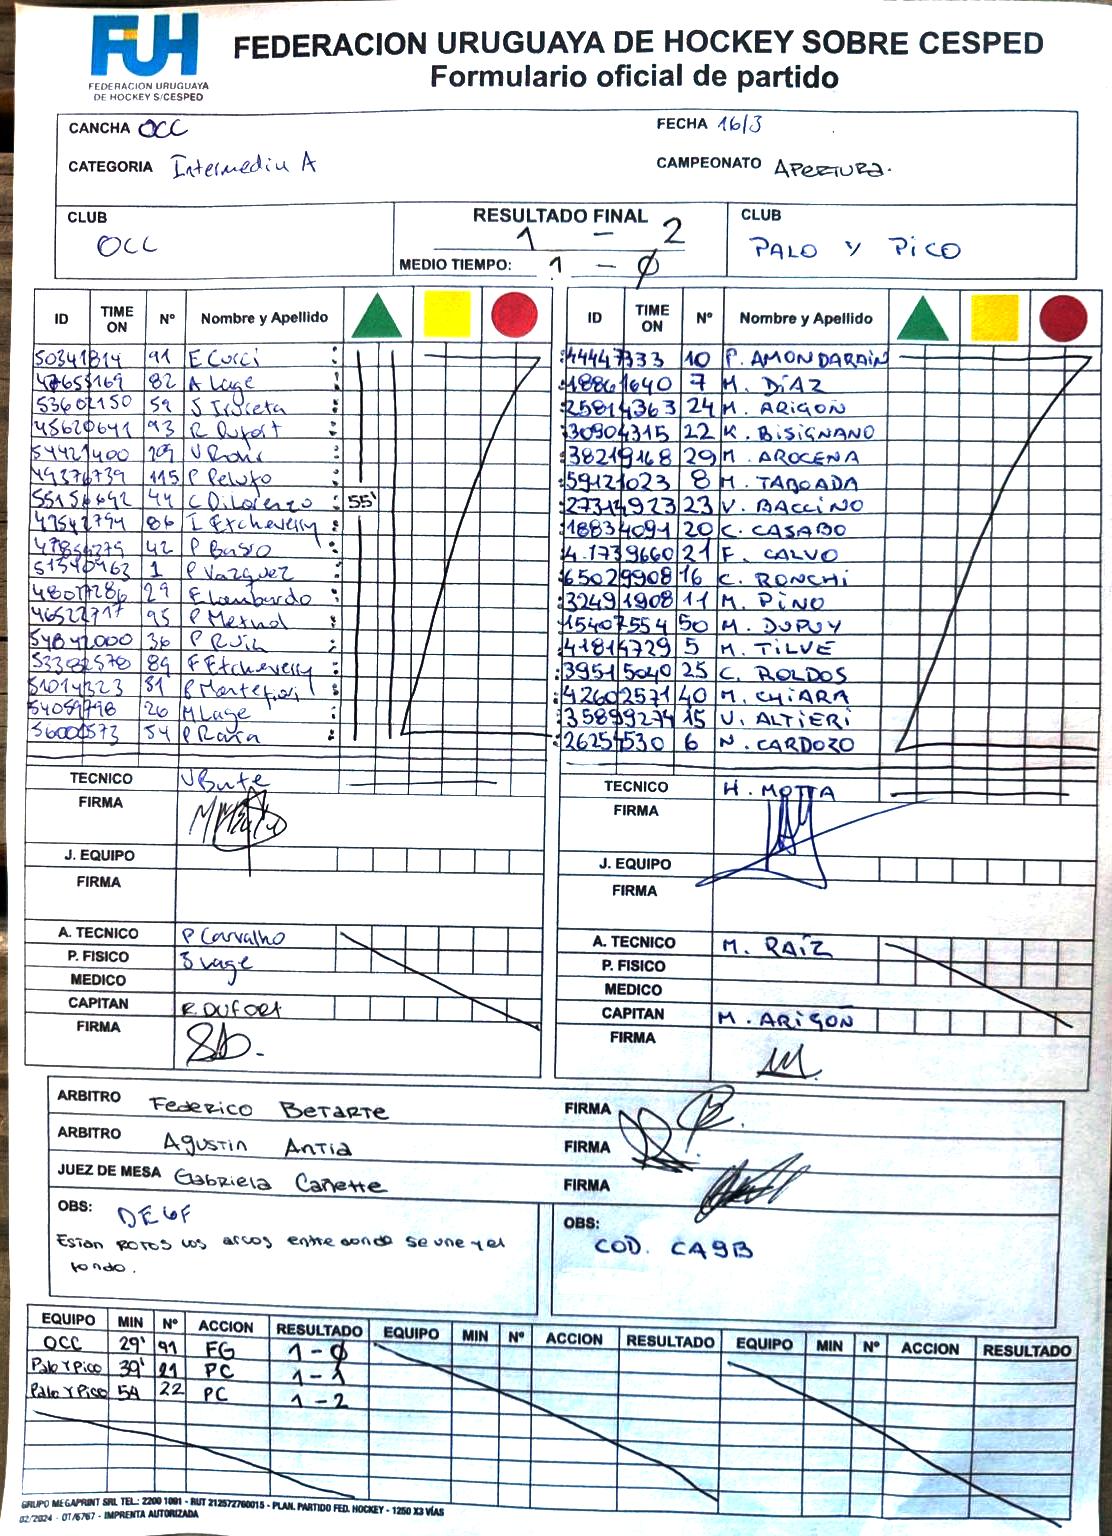 FUH
FEDERACION URUGUAYA
DE HOCKEY S/CESPED
FEDERACION URUGUAYA DE HOCKEY SOBRE CESPED
Formulario oficial de partido
CANCHA OCC
FECHA 16/3
CATEGORIA Intermedia A
CAMPEONATO APERTURA.
CLUB
OCC
RESULTADO FINAL
1 - 2
MEDIO TIEMPO: 1 - Ø
CLUB
PALO Y PICO
ID TIME ON Nº Nombre y Apellido
50341814 91 E Cucci
82 A Lage
53602150 59
45620641 93 R Dufort
54421400
49376739 115 P Pelufo
44 C DiLorenzo 55'
47542794 86 I Etcheverry
42 P Basso
1 P Vazquez
29 E Lombardo
46522717 95
54842000 36
89 F Etcheverry
26 M Lage
54
ID TIME ON Nº Nombre y Apellido
44447333 10 P. AMONDARAIN
18861640 7 M. DÍAZ
25814363 24 M. ARIGÓN
30904315 22 K. BISIGNANO
38219168 29 M. AROCENA
59121023 8 M. TABOADA
27314923 23 V. BACCINO
18834091 20 C. CASABO
4.1739660 21 F. CALVO
65029908 16 C. RONCHI
32491908 11 M. PINO
15407554 50 M. DUPUY
41814729 5 M. TILVE
39515040 25 C. ROLDOS
42602571 40 M. CHIARA
35899274 15 V. ALTIERI
26257530 6 N. CARDOZO
TECNICO
FIRMA
J. EQUIPO
FIRMA
A. TECNICO P Carvalho
P. FISICO S Lage
MEDICO
CAPITAN R. DUFORT
FIRMA
TECNICO H. MOTTA
FIRMA
J. EQUIPO
FIRMA
A. TECNICO M. RAÍZ
P. FISICO
MEDICO
CAPITAN M. ARIGÓN
FIRMA
ARBITRO Federico Betarte FIRMA
ARBITRO Agustin Antia FIRMA
JUEZ DE MESA Gabriela Canette FIRMA
OBS: DE6F
Estan rotos los arcos entre donde se une y el
fondo.
OBS:
COD. CA9B
EQUIPO MIN Nº ACCION RESULTADO EQUIPO MIN Nº ACCION RESULTADO EQUIPO MIN Nº ACCION RESULTADO
OCC 29' 91 FG 1 - Ø
Palo Y Pico 39' 21 PC 1 - 1
Palo Y Pico 54 22 PC 1 - 2
GRUPO MEGAPRINT SRL TEL.: 2200 1091 - RUT 212572760015 - PLAN. PARTIDO FED. HOCKEY - 1250 X3 VÍAS
02/2024 - OT/6767 - IMPRENTA AUTORIZADA